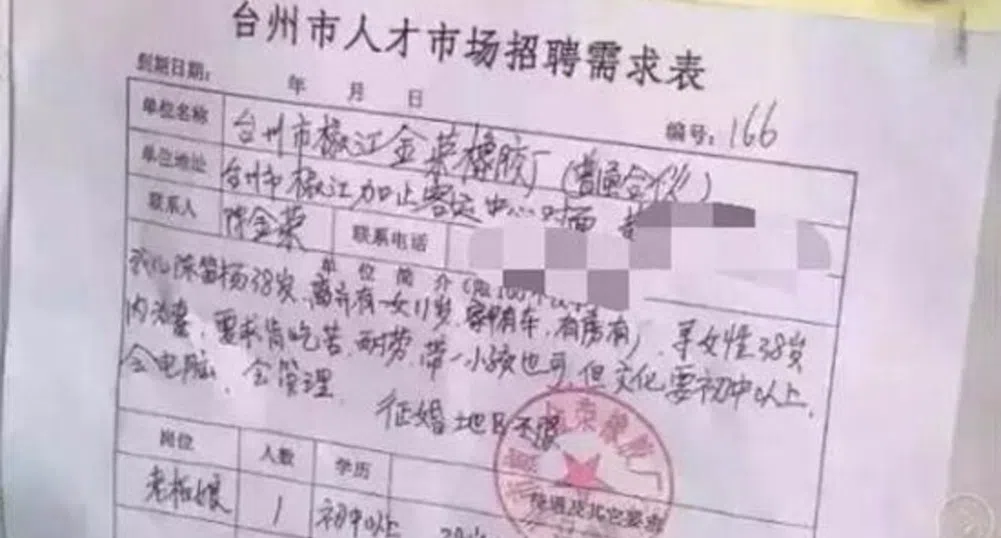 台州市人才市场招聘需求表
到期日期: 年 月 日 编号: 166
单位名称 台州市椒江金荣橡胶厂(普通合伙)
单位地址 台州市椒江加止客运中心对面
联系人 陈金荣 联系电话
单位简介
我儿陈笛杨38岁,离异有一女11岁,家中有车,有房有厂,寻女性38岁
内为妻,要求肯吃苦,耐劳,带一小孩也可,但文化要初中以上,
会电脑,会管理.
征婚地区不限
岗位 人数 学历 待遇及其它要求
老板娘 1 初中以上
荣橡胶厂